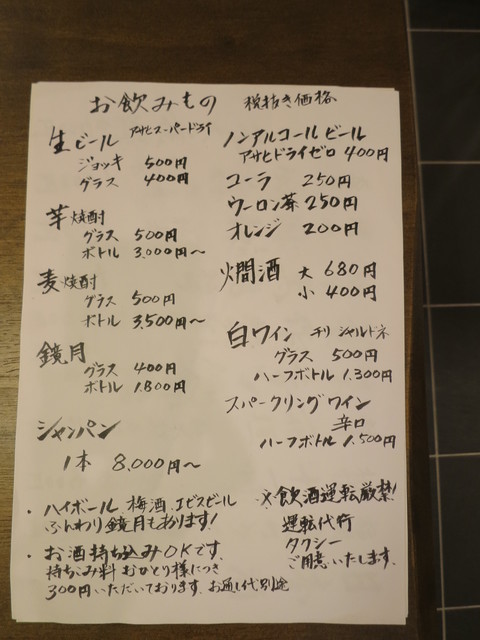 お飲みもの 税抜き価格
生ビール アサヒスーパードライ
ジョッキ 500円
グラス 400円
芋焼酎
グラス 500円
ボトル 3,000円～
麦焼酎
グラス 500円
ボトル 3,500円～
鏡月
グラス 400円
ボトル 1,800円
シャンパン
1本 8,000円～
ノンアルコールビール
アサヒドライゼロ 400円
コーラ 250円
ウーロン茶 250円
オレンジ 200円
燗酒 大 680円
小 400円
白ワイン チリ シャルドネ
グラス 500円
ハーフボトル 1,300円
スパークリングワイン
辛口
ハーフボトル 1,500円
・ハイボール、梅酒、エビスビール
ふんわり鏡月もあります!
・お酒持ち込みOKです。
持ち込み料 おひとり様につき
300円いただいております。お通し代別途
※飲酒運転厳禁!
運転代行
タクシー
ご用意いたします。